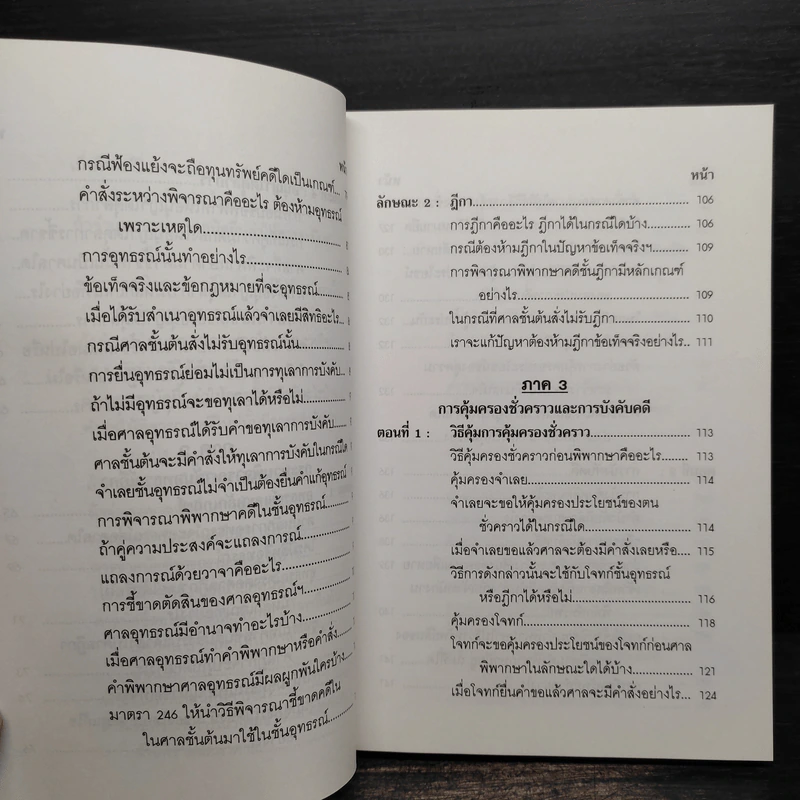 กรณีฟ้องแย้งจะถือทุนทรัพย์คดีใดเป็นเกณฑ์...
คำสั่งระหว่างพิจารณาคืออะไร ต้องห้ามอุทธรณ์
เพราะเหตุใด
การอุทธรณ์นั้นทำอย่างไร
ข้อเท็จจริงและข้อกฎหมายที่จะอุทธรณ์
เมื่อได้รับสำเนาอุทธรณ์แล้วจำเลยมีสิทธิอะไร
กรณีศาลชั้นต้นสั่งไม่รับอุทธรณ์นั้น
การยื่นอุทธรณ์ย่อมไม่เป็นการทุเลาการบังคับ
ถ้าไม่มีอุทธรณ์จะขอทุเลาได้หรือไม่
เมื่อศาลอุทธรณ์ได้รับคำขอทุเลาการบังคับ
ศาลชั้นต้นจะมีคำสั่งให้ทุเลาการบังคับในกรณีใด
จำเลยชั้นอุทธรณ์ไม่จำเป็นต้องยื่นคำแก้อุทธรณ์
การพิจารณาพิพากษาคดีในชั้นอุทธรณ์
ถ้าคู่ความประสงค์จะแถลงการณ์
แถลงการณ์ด้วยวาจาคืออะไร
การชี้ขาดตัดสินของศาลอุทธรณ์ฯ
ศาลอุทธรณ์มีอำนาจทำอะไรบ้าง
เมื่อศาลอุทธรณ์ทำคำพิพากษาหรือคำสั่ง
คำพิพากษาศาลอุทธรณ์มีผลผูกพันใครบ้าง
มาตรา 246 ให้นำวิธีพิจารณาชี้ขาดคดีใน
ศาลชั้นต้นมาใช้ในชั้นอุทธรณ์
หน้า
ลักษณะ 2 : ฎีกา 106
การฎีกาคืออะไร ฎีกาได้ในกรณีใดบ้าง 106
กรณีต้องห้ามฎีกาในปัญหาข้อเท็จจริงฯ 109
การพิจารณาพิพากษาคดีชั้นฎีกามีหลักเกณฑ์
อย่างไร 109
ในกรณีที่ศาลชั้นต้นสั่งไม่รับฎีกา 110
เราจะแก้ปัญหาต้องห้ามฎีกาข้อเท็จจริงอย่างไร.. 111
ภาค 3
การคุ้มครองชั่วคราวและการบังคับคดี
ตอนที่ 1 : วิธีคุ้มการคุ้มครองชั่วคราว 113
วิธีคุ้มครองชั่วคราวก่อนพิพากษาคืออะไร 113
คุ้มครองจำเลย 114
จำเลยจะขอให้คุ้มครองประโยชน์ของตน
ชั่วคราวได้ในกรณีใด 114
เมื่อจำเลยขอแล้วศาลจะต้องมีคำสั่งเลยหรือ.... 115
วิธีการดังกล่าวนั้นจะใช้กับโจทก์ชั้นอุทธรณ์
หรือฎีกาได้หรือไม่ 116
คุ้มครองโจทก์ 118
โจทก์จะขอคุ้มครองประโยชน์ของโจทก์ก่อนศาล
พิพากษาในลักษณะใดได้บ้าง 121
เมื่อโจทก์ยื่นคำขอแล้วศาลจะมีคำสั่งอย่างไร... 124